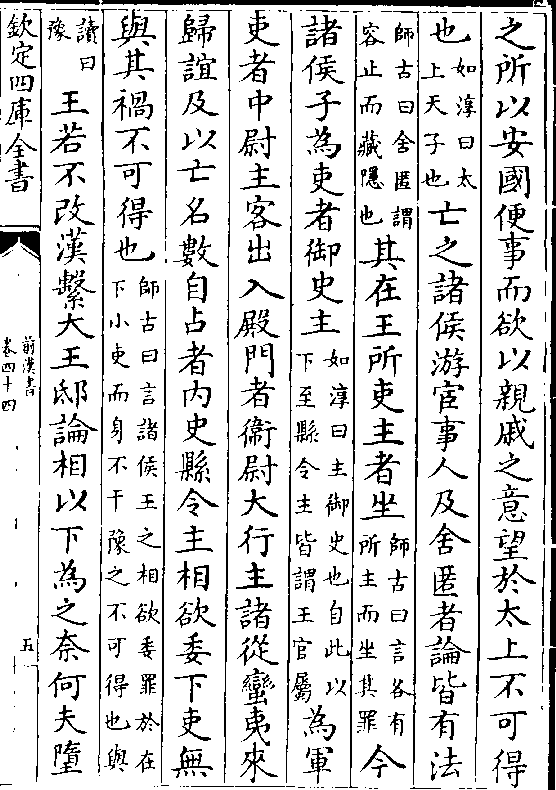 之所以安國便事而欲以親戚之意望於太上不可得
也如淳曰太上天子也亡之諸侯游宦事人及舍匿者論皆有法
師古曰舍匿謂容止而藏隠也其在王所吏主者坐師古曰言各有所主而坐其罪今
諸侯子為吏者御史主如淳曰主御史也自此以下至縣令主皆謂王官屬為軍
吏者中尉主客出入殿門者衞尉大行主諸從蠻夷來
歸誼及以亡名數自占者内史縣令主相欲委下吏無
與其禍不可得也師古曰言諸侯王之相欲委罪於在下小吏而身不干豫之不可得也與
讀曰豫王若不改漢繫大王邸論相以下為之奈何夫墮
欽定四庫全書
前漢書
卷四十四
五